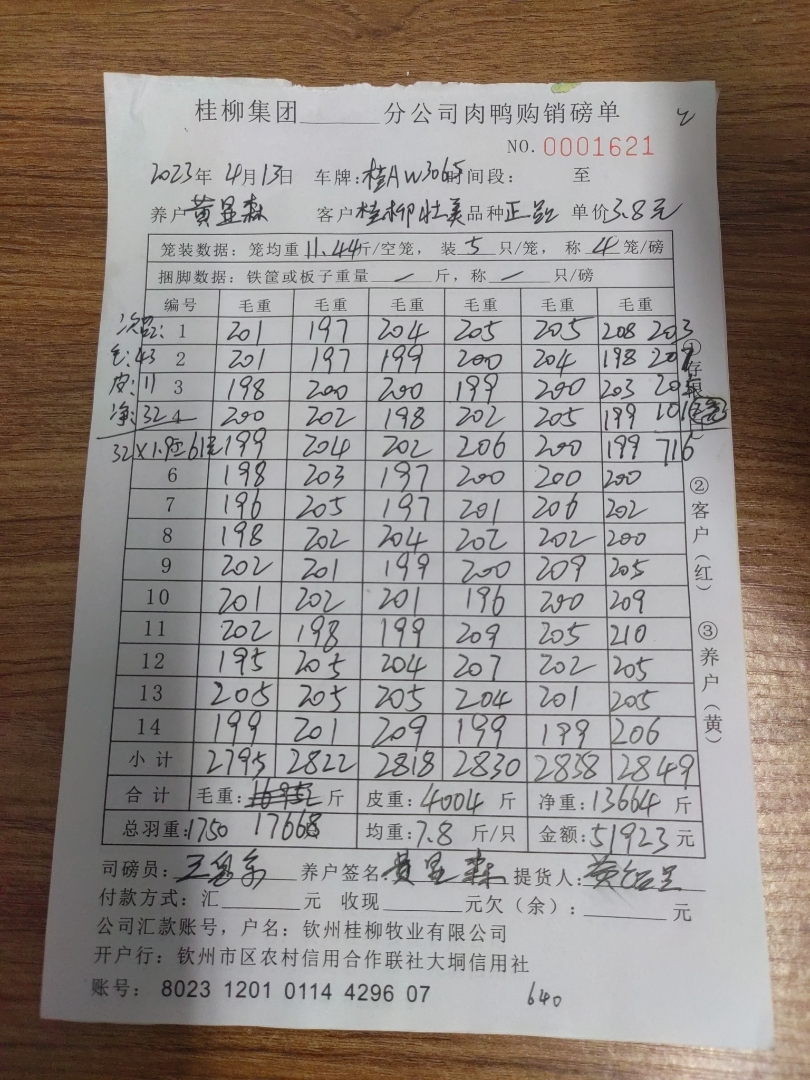 桂柳集团______分公司肉鸭购销磅单
NO. 0001621
2023年 4月13日 车牌:桂AW3065 时间段: 至
养户 黄显森 客户 桂柳壮美 品种 正品 单价 3.8元
笼装数据: 笼均重 11.44斤/空笼, 装 5 只/笼, 称 4 笼/磅
捆脚数据: 铁筐或板子重量 — 斤, 称 — 只/磅
编号 毛重 毛重 毛重 毛重 毛重 毛重
1 201 197 204 205 205 208 203
毛:43 2 201 197 199 200 204 198 207
皮:11 3 198 200 200 199 200 203
净:32 4 200 202 198 202 205 199
199 204 202 206 200 199 716
6 198 203 197 200 200 200
7 196 205 197 201 206 202
8 198 202 204 202 202 200
9 202 201 199 200 209 205
10 201 202 201 196 200 209
11 202 198 199 209 205 210
12 195 205 204 207 202 205
13 205 205 205 204 201 205
14 199 201 209 199 199 206
小计 2795 2822 2818 2830 2838 2849
合计 毛重: 斤 皮重: 4004 斤 净重: 13664 斤
总羽重: 1750 17668 均重: 7.8 斤/只 金额: 51923 元
司磅员: 养户签名 黄显森 提货人:
付款方式: 汇______元 收现______元欠(余): ______元
公司汇款账号, 户名: 钦州桂柳牧业有限公司
开户行: 钦州市区农村信用合作联社大垌信用社
账号: 8023 1201 0114 4296 07 640
②客户(红)
③养户(黄)